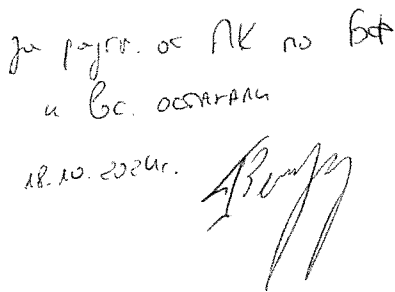 За разгл. от ПК по БФ
и вс. останали
18.10.2024г.